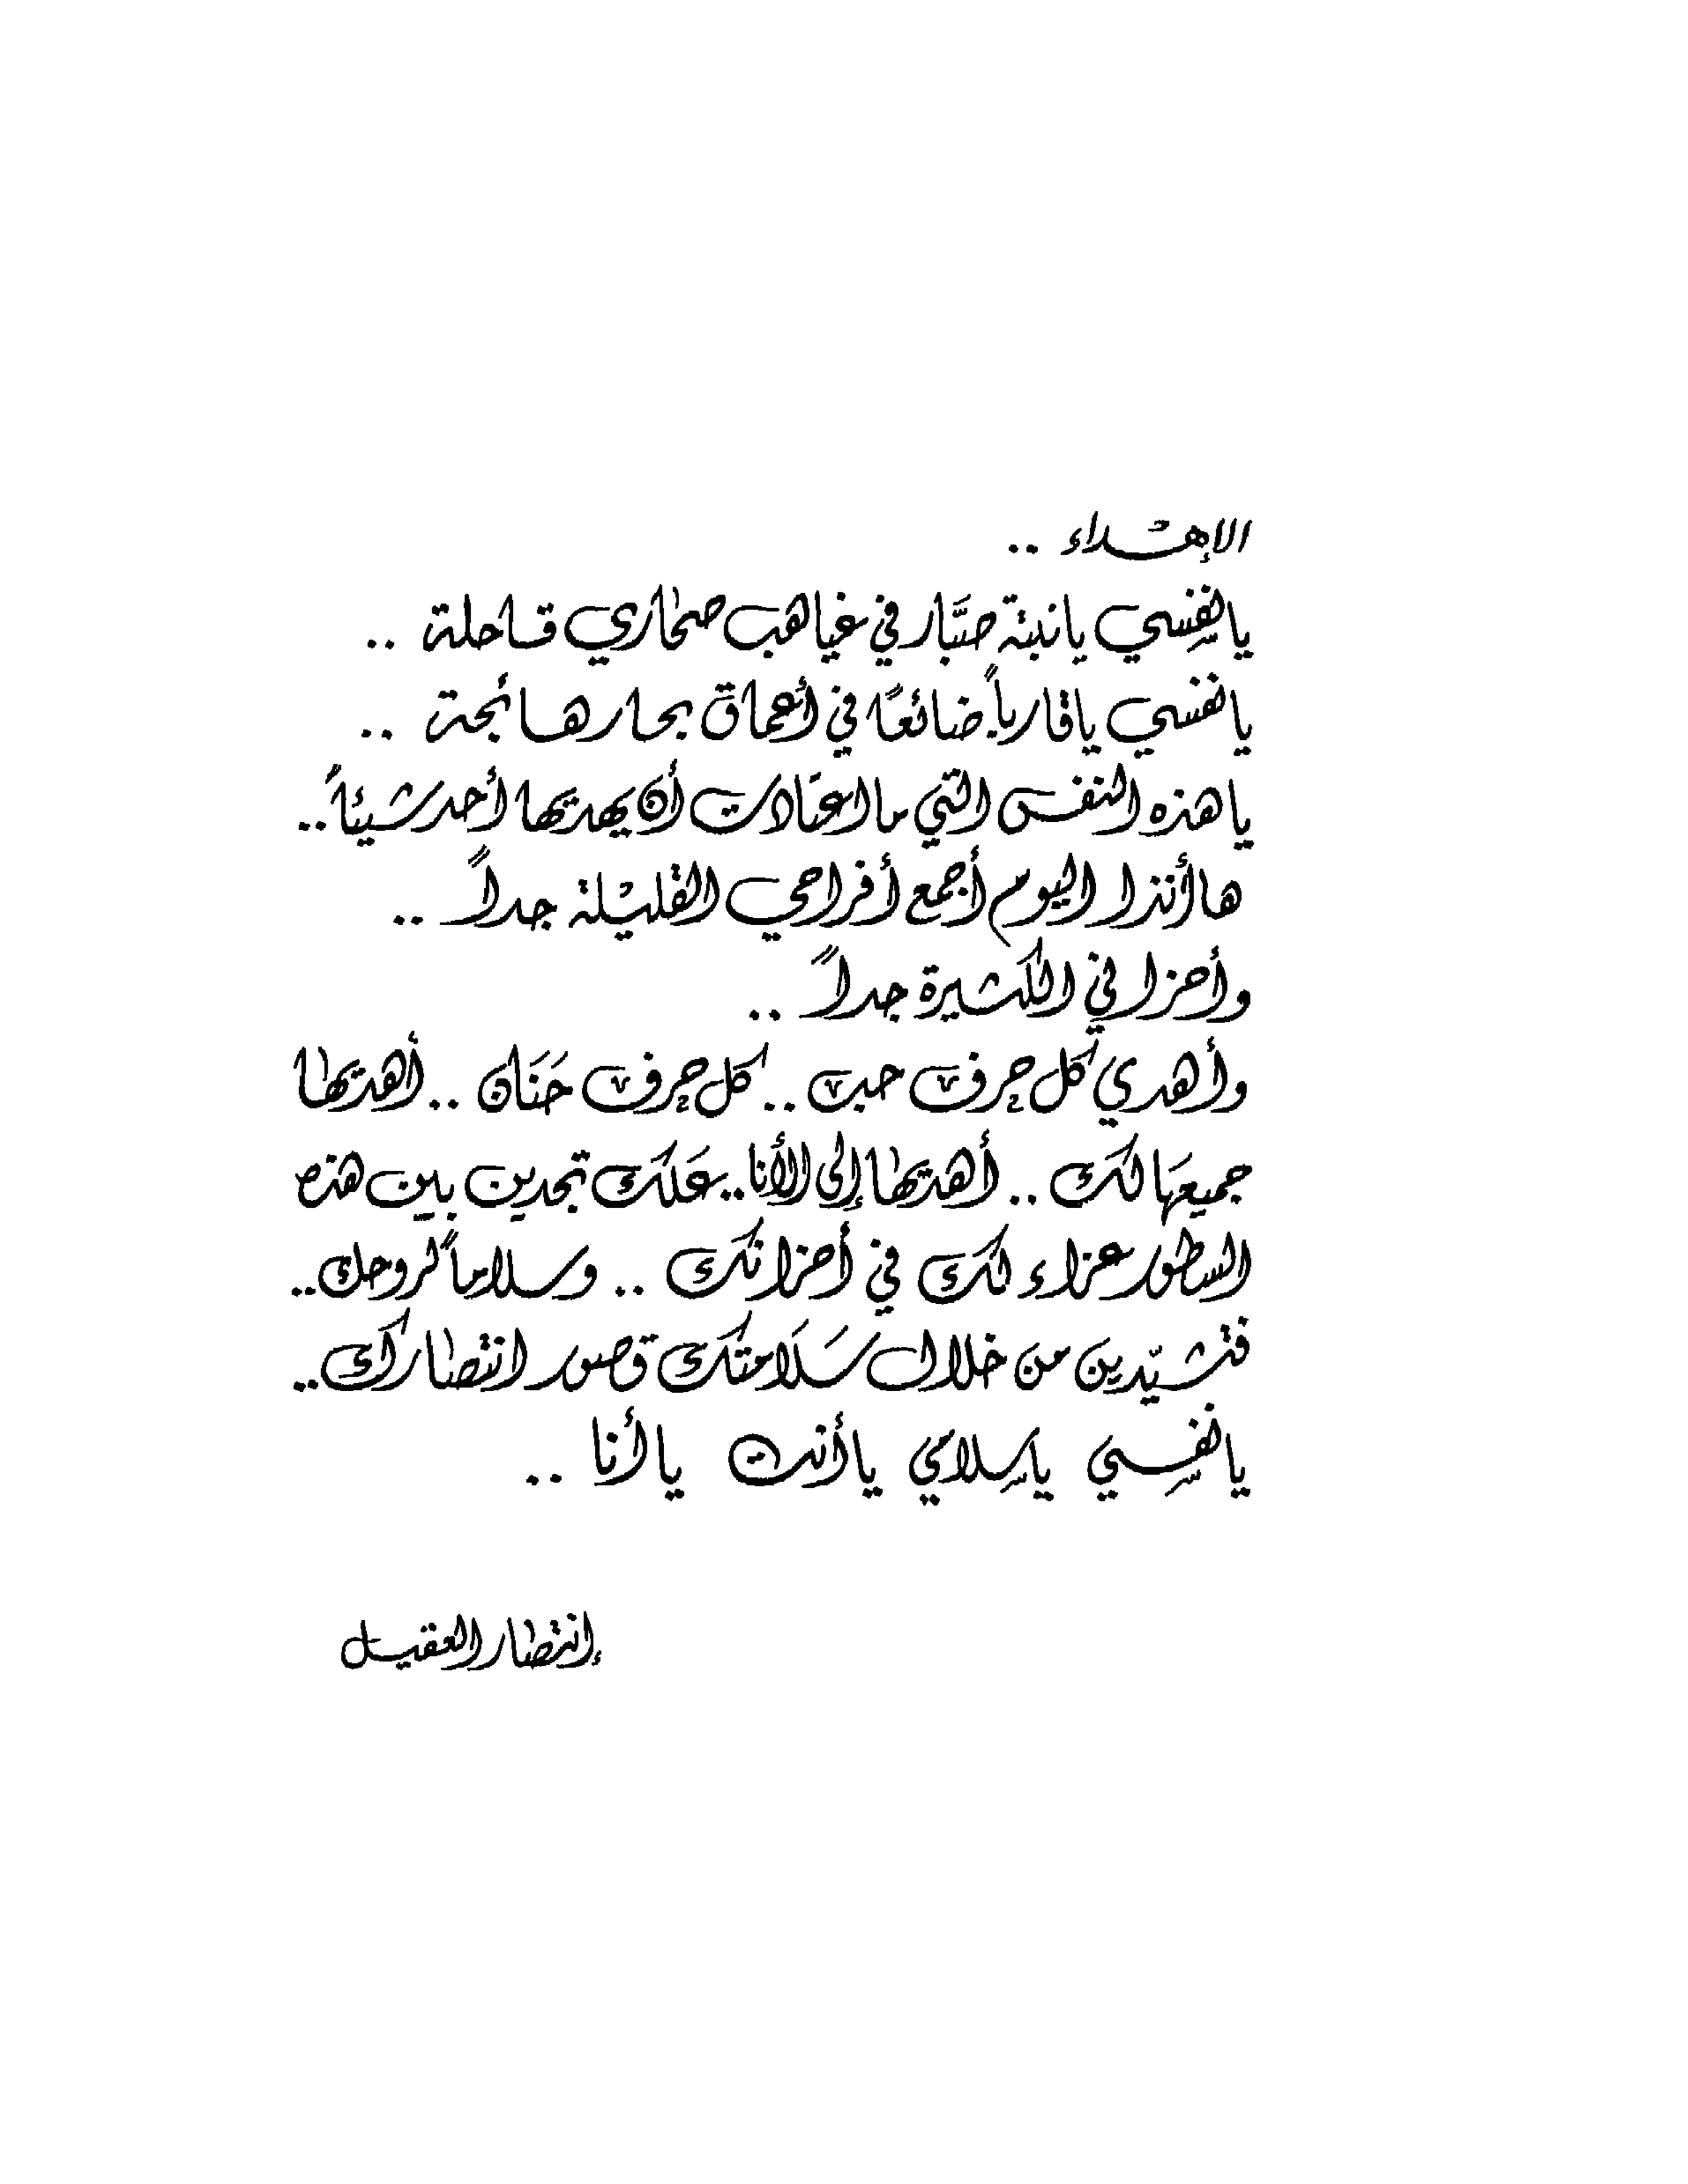 الإهداء ..
يا نفسي يا نبتة صبَّار في غياهب صحاري قاحلة ..
يا نفسي يا قارباً ضائعًا في أعماق بحار هائجة ..
يا هذه النفس التي ما اعتادت أن يهديها أحد شيئاً ..
ها أنذا اليوم أجمع أفراحي القليلة جداً ..
وأحزاني الكثيرة جداً ..
وأهدي كل حرف حب .. كل حرف حَنَان .. أهديها
جميعَها لك .. أهديها إلى الأنا .. عَلك تجدين بين هذه
السطور عزاء لك في أحزانك .. وسلاماً لروحك ..
فتشيّدين من خلال سَلَامتك قصور انتصارك ..
يا نفسِي يا سلامي يا أنت يا أنا ..
إنتصار العقيل